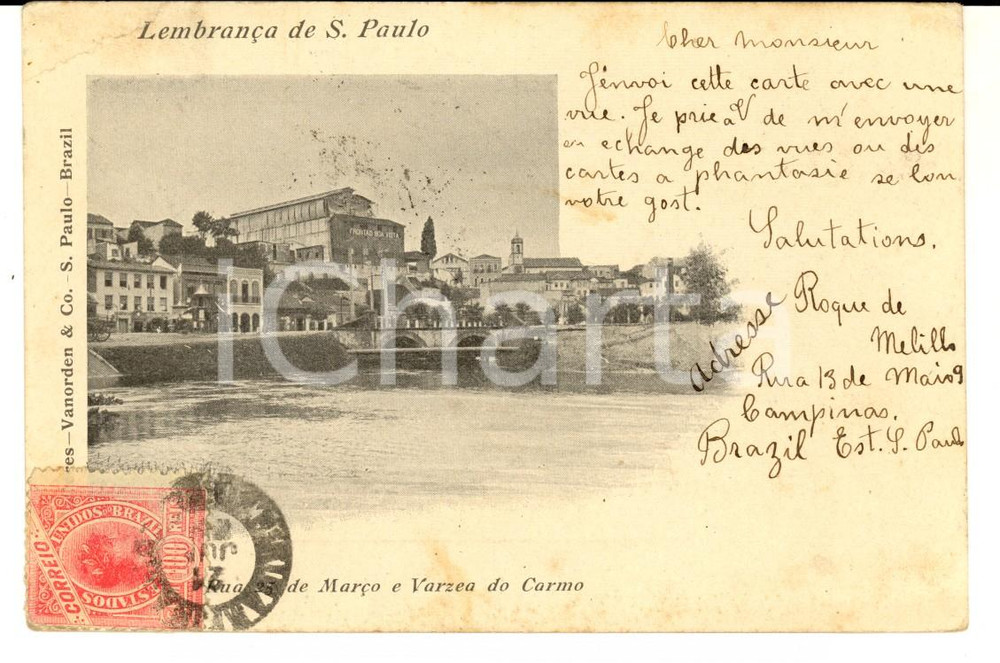 Lembrança de S. Paulo
Cher Monsieur
J'envoi cette carte avec une
vue. Je prie V de m'envoyer
en echange des vues ou des
cartes a phantasie se lon
votre gost.
Salutations.
Adresse Roque de
Melillo
Rua 13 de Maio 9
Campinas.
Brazil Est. S. Paulo
FRONTÃO BOA VISTA
iCharta
res—Vanorden & Co.—S. Paulo—Brazil
CORREIO
E. UNIDOS DO BRAZIL
ESTADOS
100 REIS
Rua 25 de Março e Varzea do Carmo